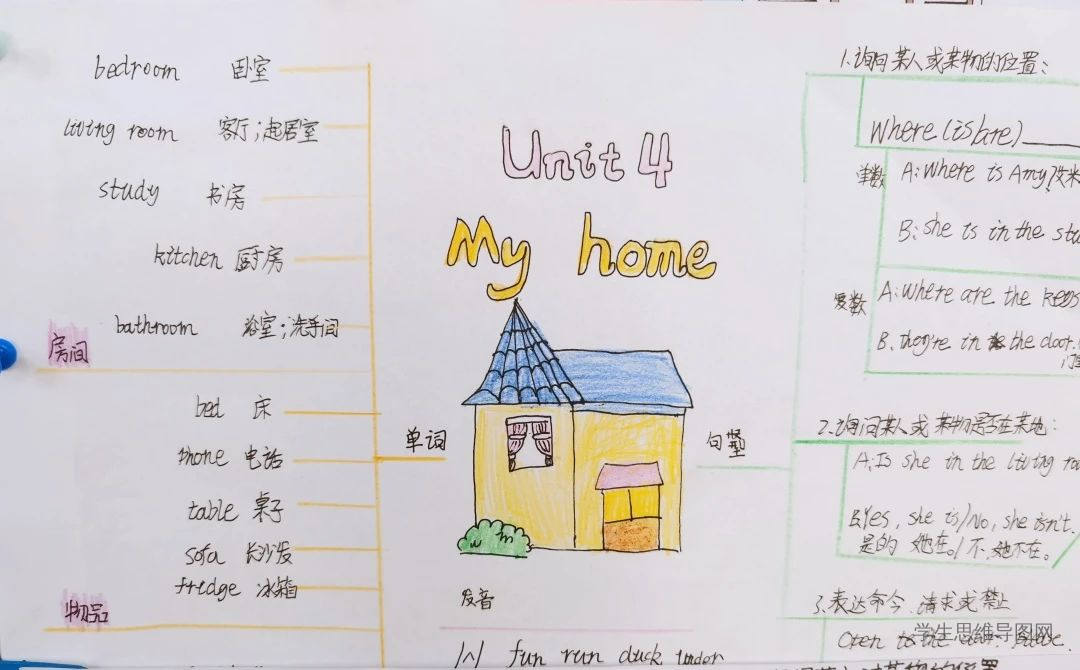 Unit 4
My home
单词
房间
bedroom 卧室
living room 客厅;起居室
study 书房
kitchen 厨房
bathroom 浴室;洗手间
物品
bed 床
phone 电话
table 桌子
sofa 长沙发
fridge 冰箱
发音
/ʌ/ fun run duck under
句型
1.询问某人或某物的位置:
Where (is/are)
单数
A:Where is Amy?
B:she is in the
复数
A:Where are the
B.they're in the door.
2.询问某人或某物是否在某地:
A:Is she in the living
B:Yes, she is/No, she isn't.
是的 她在。/不,她不在。
3.表达命令.请求或禁止
学生思维导图网